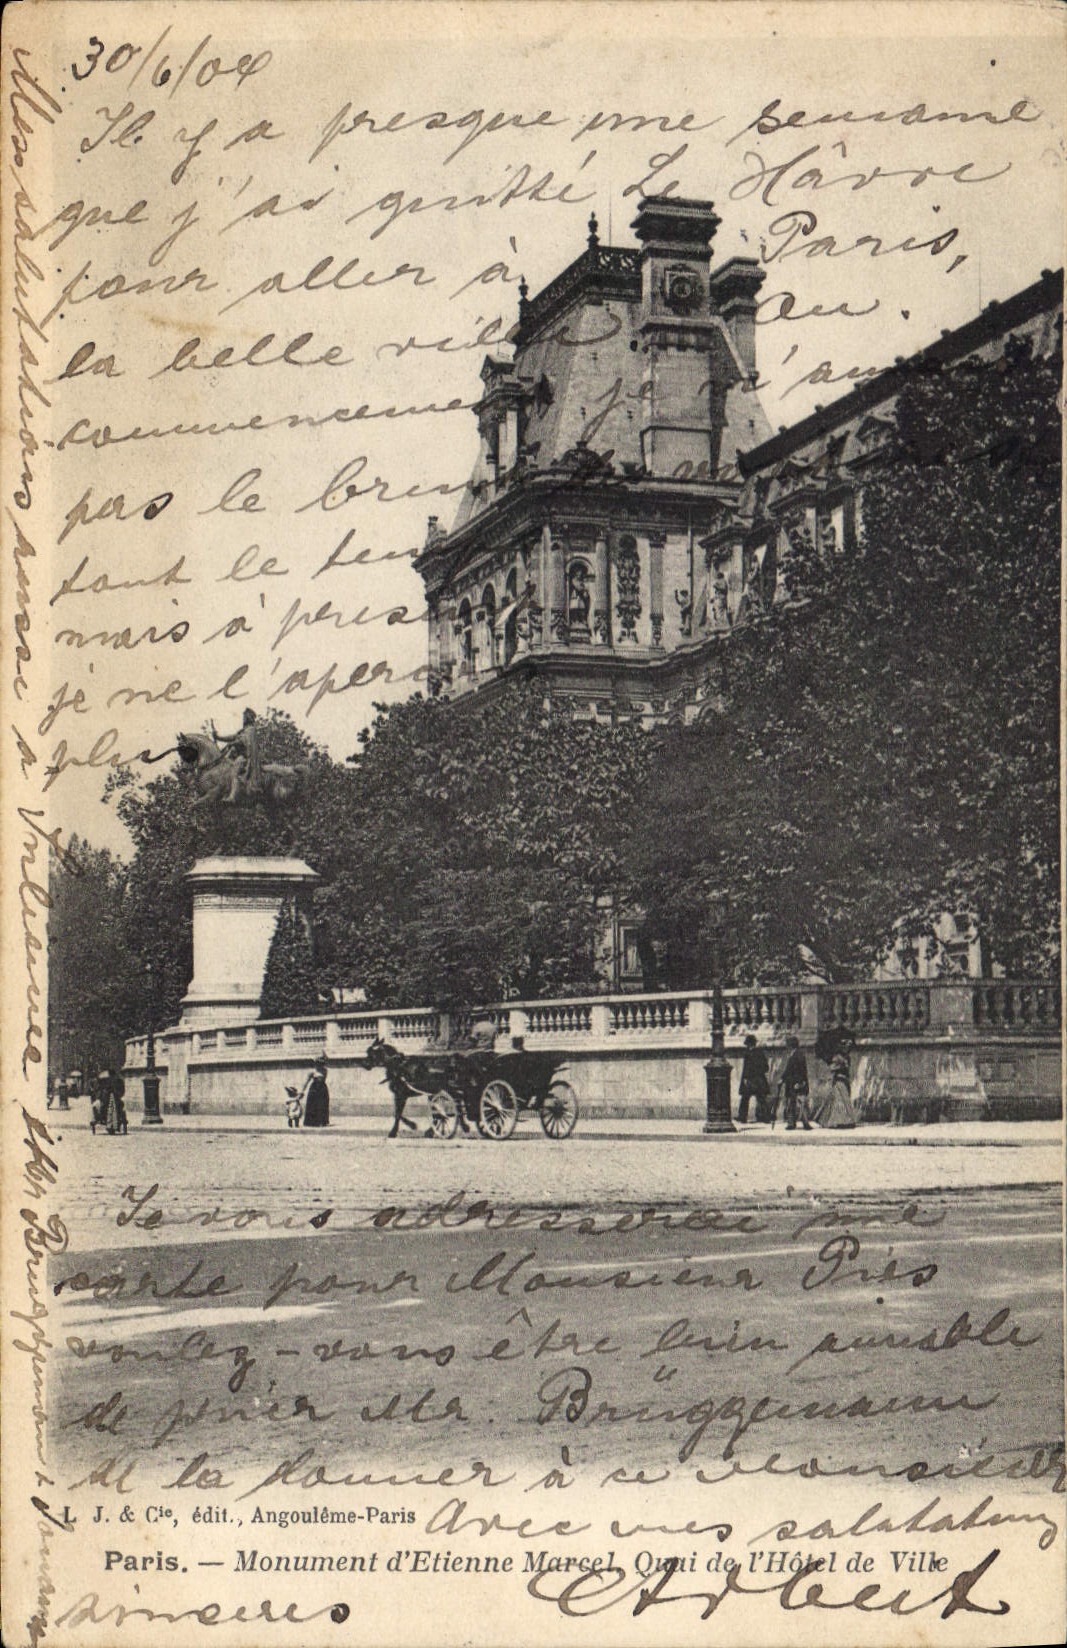 30/6/04
Il y a presque une semaine
que j'ai quitté Le Hâvre
pour aller à Paris,
la belle ville. Au
commencement je n'aimais
pas le bruit des
tout le temps
mais à présent
je ne l'aperçois
plus
Je vous adresserai une
carte pour Monsieur Pries
voulez-vous être bien aimable
de prier Mr. Brüggemann
de la donner à ce Monsieur
Avec mes salutations
sincères Albert
Mes salutations aussi à Brüggemann
L J. & Cie, édit., Angoulême-Paris
Paris. — Monument d'Etienne Marcel, Quai de l'Hôtel de Ville